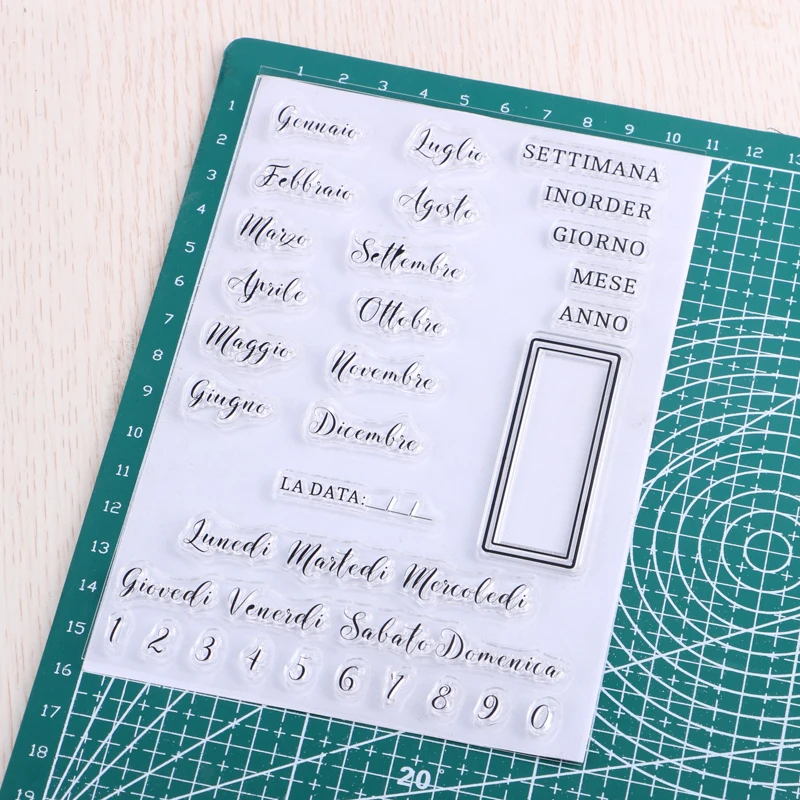 1 2 3 4 5 6 7 8 9 10 11 12 13
1
2
3
4
5
6
7
8
9
10
11
12
13
14
15
16
17
18
19
Gennaio
Febbraio
Marzo
Aprile
Maggio
Giugno
Luglio
Agosto
Settembre
Ottobre
Novembre
Dicembre
SETTIMANA
INORDER
GIORNO
MESE
ANNO
LA DATA:__/__/__
Lunedi Martedi Mercoledi
Giovedi Venerdi Sabato Domenica
1 2 3 4 5 6 7 8 9 0
20°